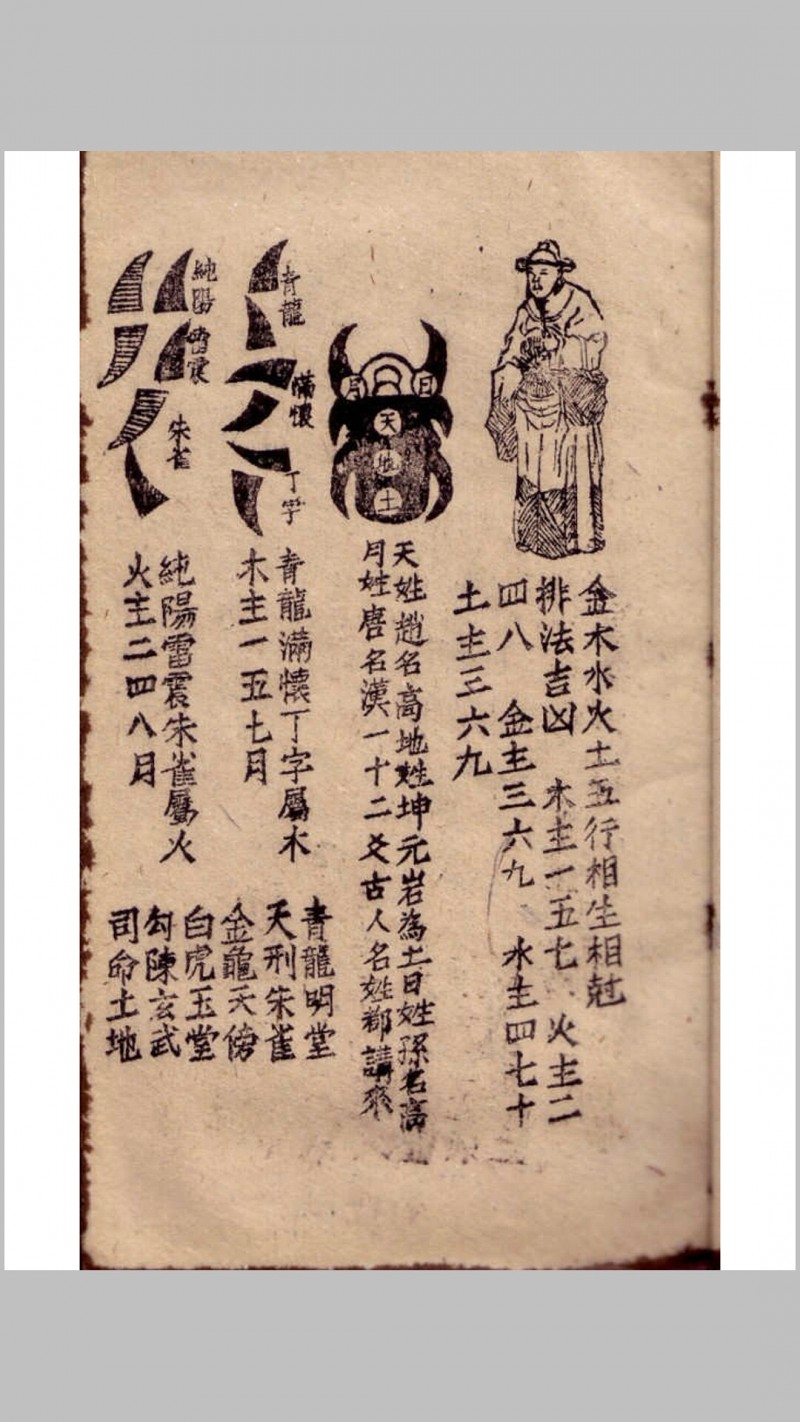 金木水火土五行相生相尅
排法吉凶　木主一五七　火主二
四八　金主三六九　水主四七十
土主三六九
日
月
天
地
土
天姓趙名高地姓坤元岩為土日姓孫名高
月姓唐名漢一十二爻古人名姓都講來
青龍
滿懷
丁字
青龍滿懷丁字屬木
木主一五七月
純陽
雷震
朱雀
純陽雷震朱雀屬火
火主二四八月
青龍明堂
天刑朱雀
金龜天傍
白虎玉堂
勾陳玄武
司命土地